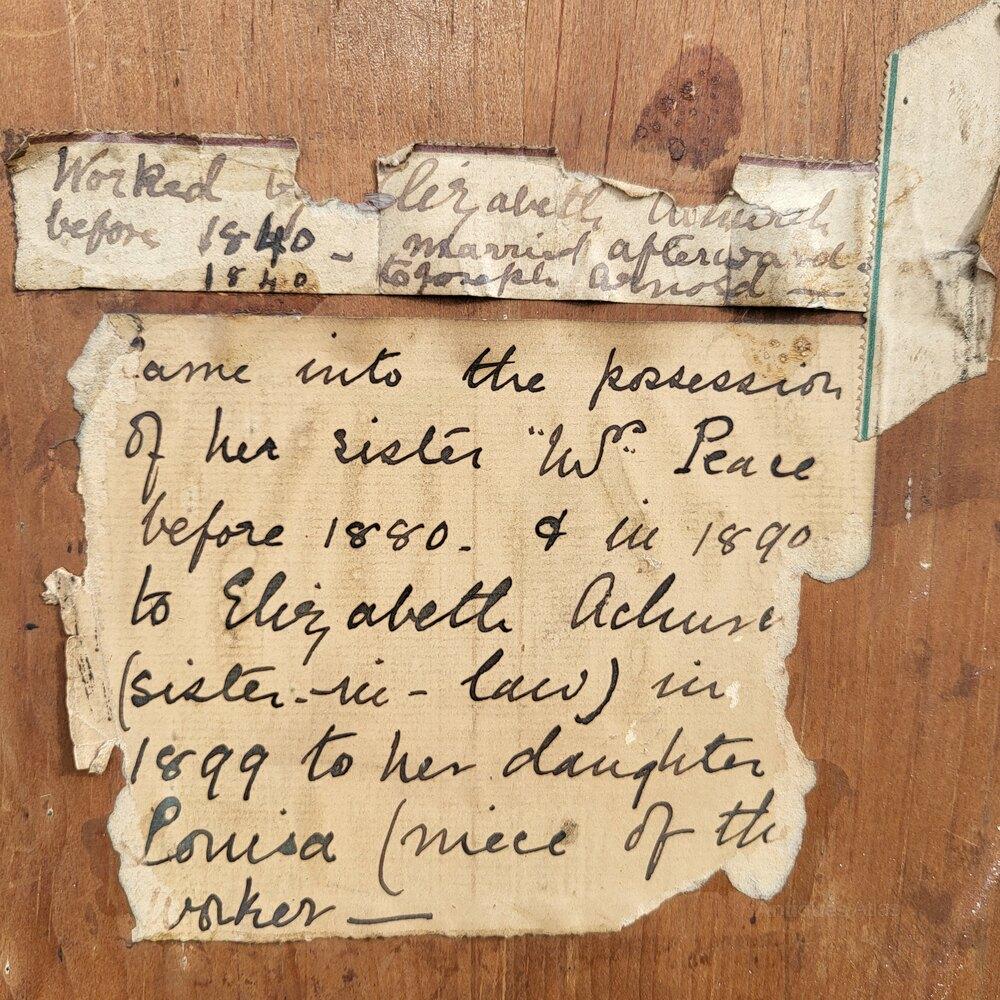 Worked
lizabeth
before 1840 - married afterwards
1840 to Joseph Arnold —
ame into the possession
of her sister "Wm" Peace
before 1880. & in 1890
to Elizabeth
(sister-in-law) in
1899 to her daughter
Louisa (niece of the
worker —